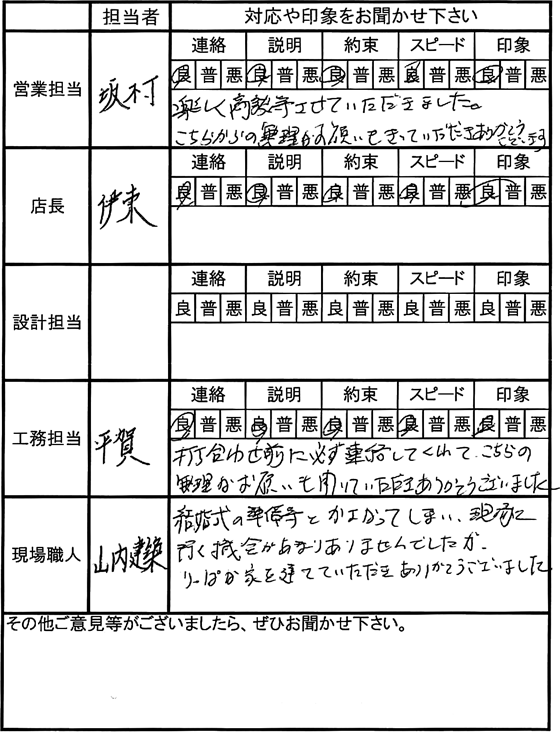 担当者 対応や印象をお聞かせ下さい
営業担当 坂村 連絡 説明 約束 スピード 印象
良 普 悪 良 普 悪 良 普 悪 良 普 悪 良 普 悪
楽しく させていただきました。
こちらからの無理なお願いもきっていただきありがとうございます
店長 伊東 連絡 説明 約束 スピード 印象
良 普 悪 良 普 悪 良 普 悪 良 普 悪 良 普 悪
設計担当 連絡 説明 約束 スピード 印象
良 普 悪 良 普 悪 良 普 悪 良 普 悪 良 普 悪
工務担当 平賀 連絡 説明 約束 スピード 印象
良 普 悪 良 普 悪 良 普 悪 良 普 悪 良 普 悪
打ち合わせ前に必ず連絡してくれて、こちらの
無理なお願いも聞いていただきありがとうございました
現場職人 山内建築 結婚式の準備等とかさなってしまい、現場に
行く機会があまりありませんでしたが、
りっぱな家を建てていただきありがとうございました。
その他ご意見等がございましたら、ぜひお聞かせ下さい。